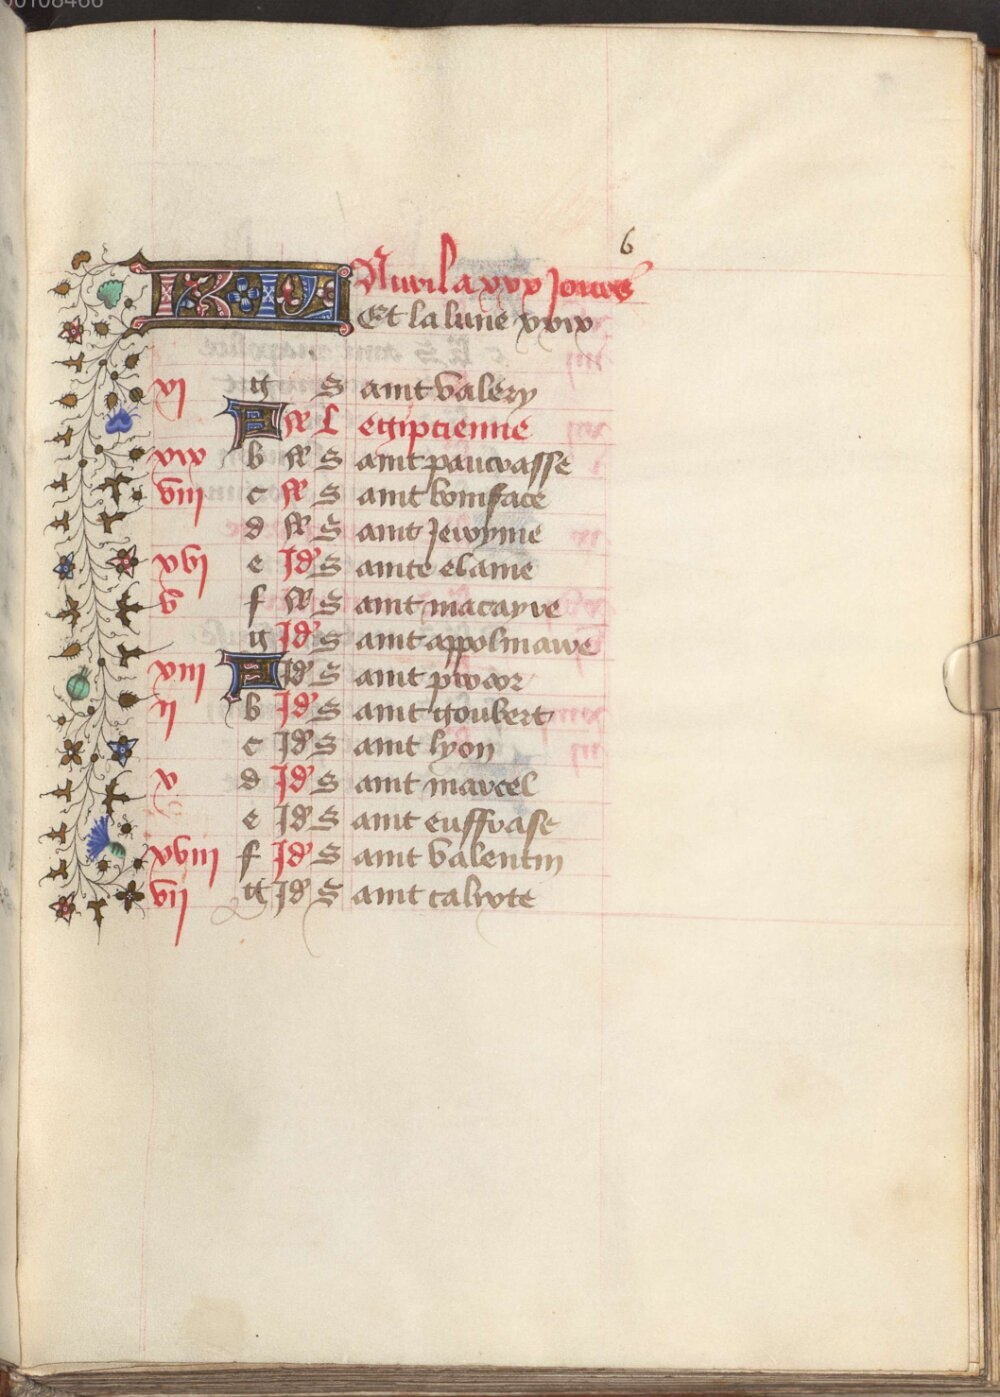 00108466
6
KL Auril a xxx Jours
Et la lune xxix
vj g S aint valery
A N L egiptienne
xix b N S aint pancrasse
viij c N S aint boniface
d N S aint Jeroyme
xvj e Jd' S ainte elaine
v f N S aint macayre
g Jd' S aint appolinaire
xiij A Jd' S aint
ij b Jd' S aint goubert
c Jd' S aint lyon
x d Jd' S aint marcel
e Jd' S aint euffrase
xviij f Jd' S aint valentin
vij g Jd' S aint calixte